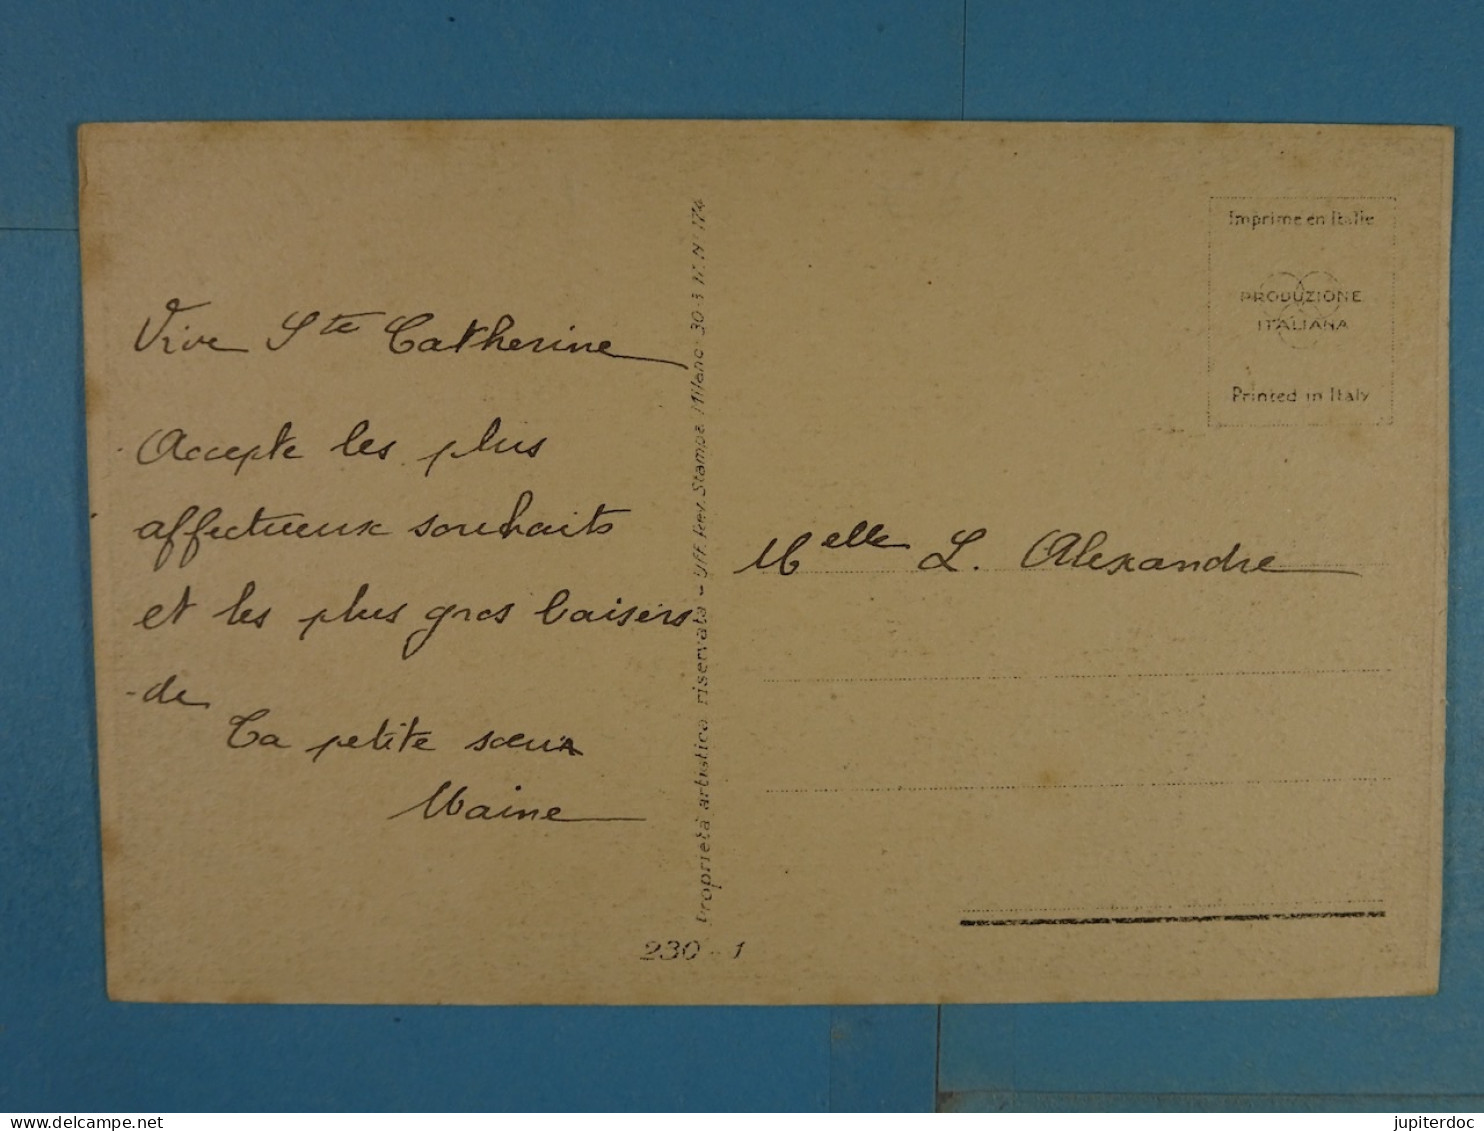 Vive Ste Catherine
Accepte les plus
affectueux souhaits
et les plus gros baisers
de
Ta petite sœur
Maine
Proprietà artistica riservata - Uff. Rev. Stampa Milano 30-3 N. 174
230 - 1
Imprimé en Italie
PRODUZIONE
ITALIANA
Printed in Italy
Melle L. Alexandre
jupiterdoc
delcampe.net